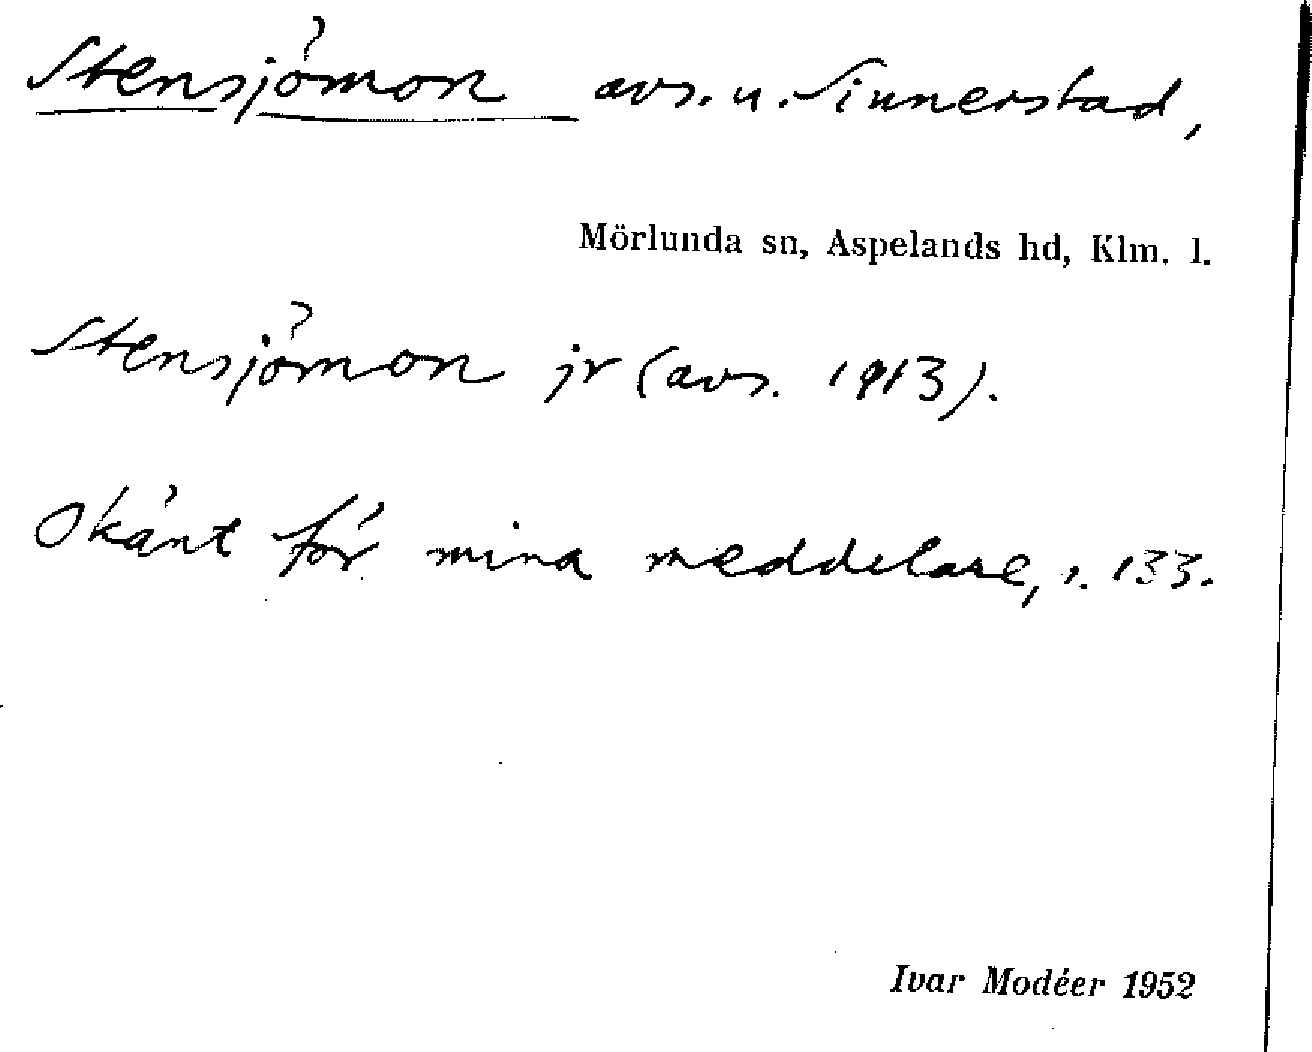 Stensjömon avs. u. Sinnerstad,
Mörlunda sn, Aspelands hd, Klm. l.
Stensjömon jr (avs. 1913).
Okänt för mina meddelare, s. 133.
Ivar Modéer 1952